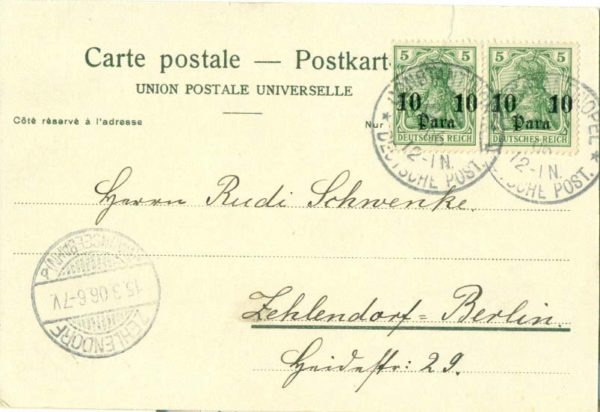 Carte postale — Postkart
UNION POSTALE UNIVERSELLE
Côté réservé à l'adresse
Nur
5 5
10 10
Para
DEUTSCHES REICH
5 5
10 10
Para
DEUTSCHES REICH
12-1 N.
★ DEUTSCHE POST.
OPEL ★
12-1 N.
DEUTSCHE POST.
Herrn Rudi Schwenke.
Zehlendorf=Berlin.
Heidestr: 29.
15.3.06.6-7V.
ZEHLENDORF